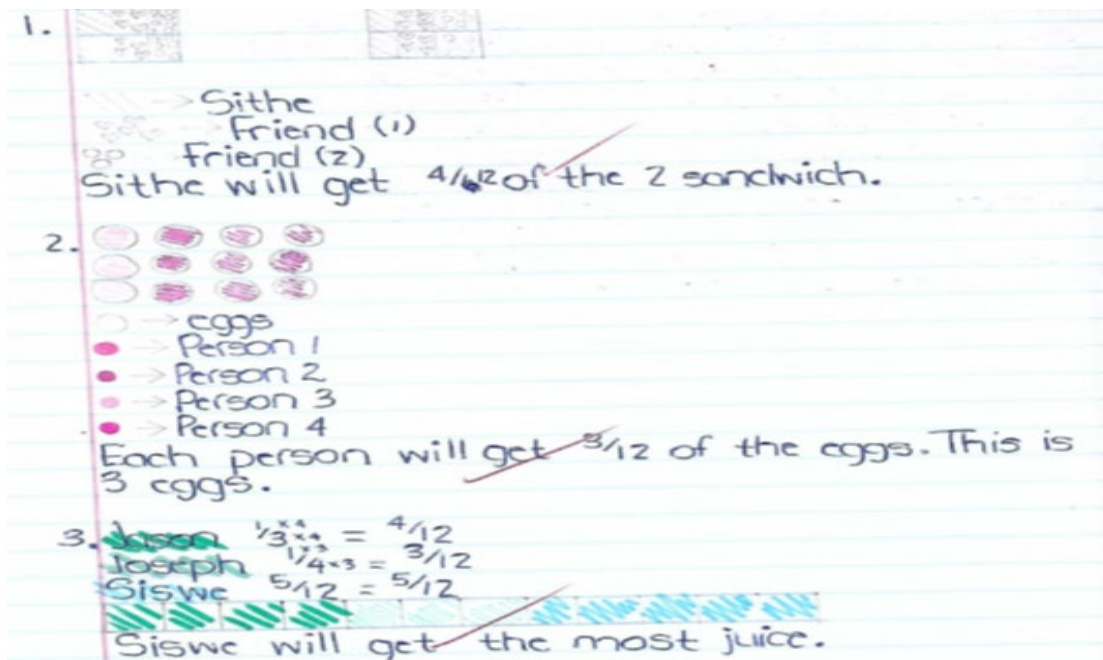 1.
→ Sithe
→ Friend (1)
Friend (2)
Sithe will get 4/12 of the 2 sandwich.
2.
→ eggs
→ Person 1
→ Person 2
→ Person 3
→ Person 4
Each person will get 3/12 of the eggs. This is
3 eggs.
3. Jason 1/3 ×4 ×4 = 4/12
Joseph 1/4 ×3 ×3 = 3/12
Siswe 5/12 = 5/12
Siswe will get the most juice.